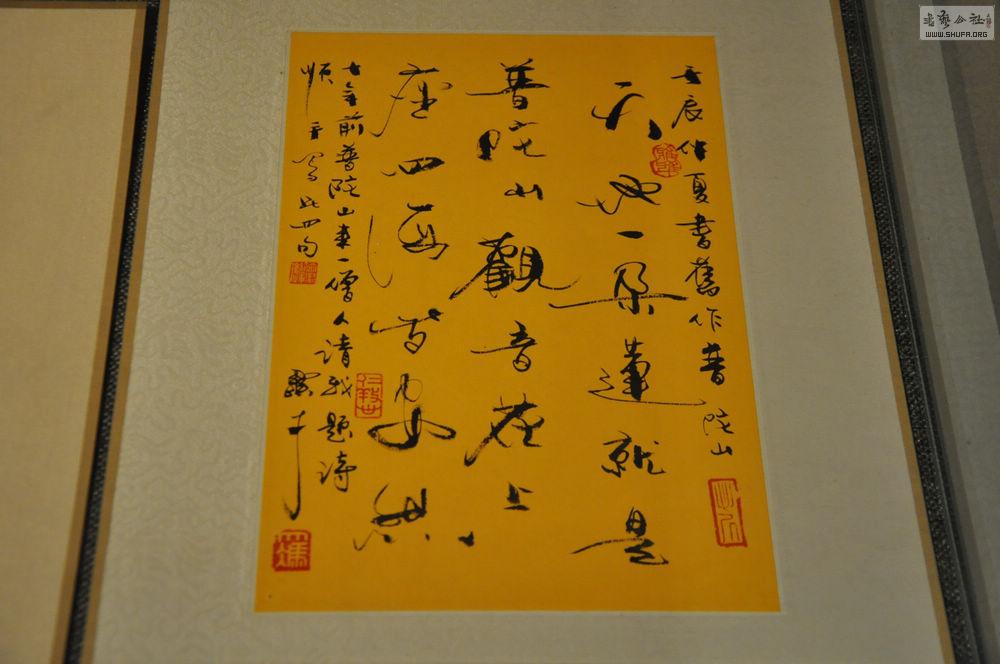 壬辰仲夏書舊作普陀山
天地一朵蓮就是
普陀山觀音在上
座四海皆安然
七年前普陀山來一僧人請我題詩
順手寫此四句
书艺公社
WWW.SHUFA.ORG